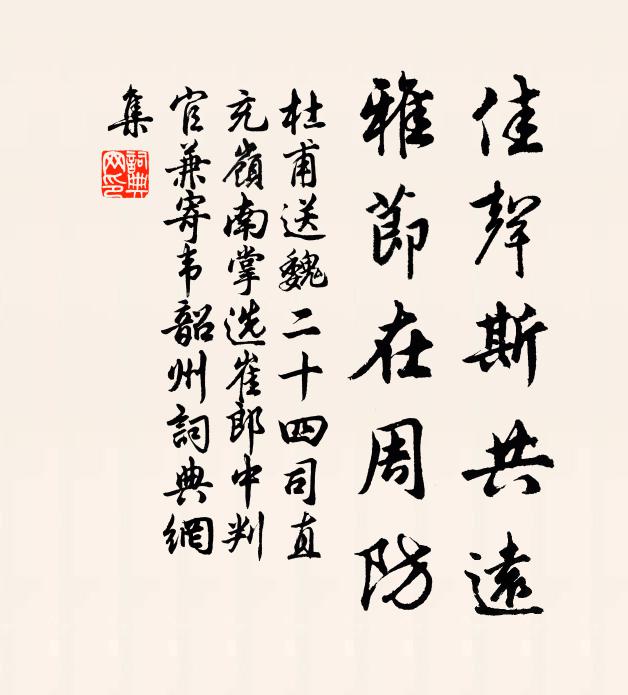 佳聲斯共遠
雅節在周防
杜甫送魏二十四司直
充嶺南掌选崔郎中判
官兼寄韦韶州詞典網
集
詞典網印